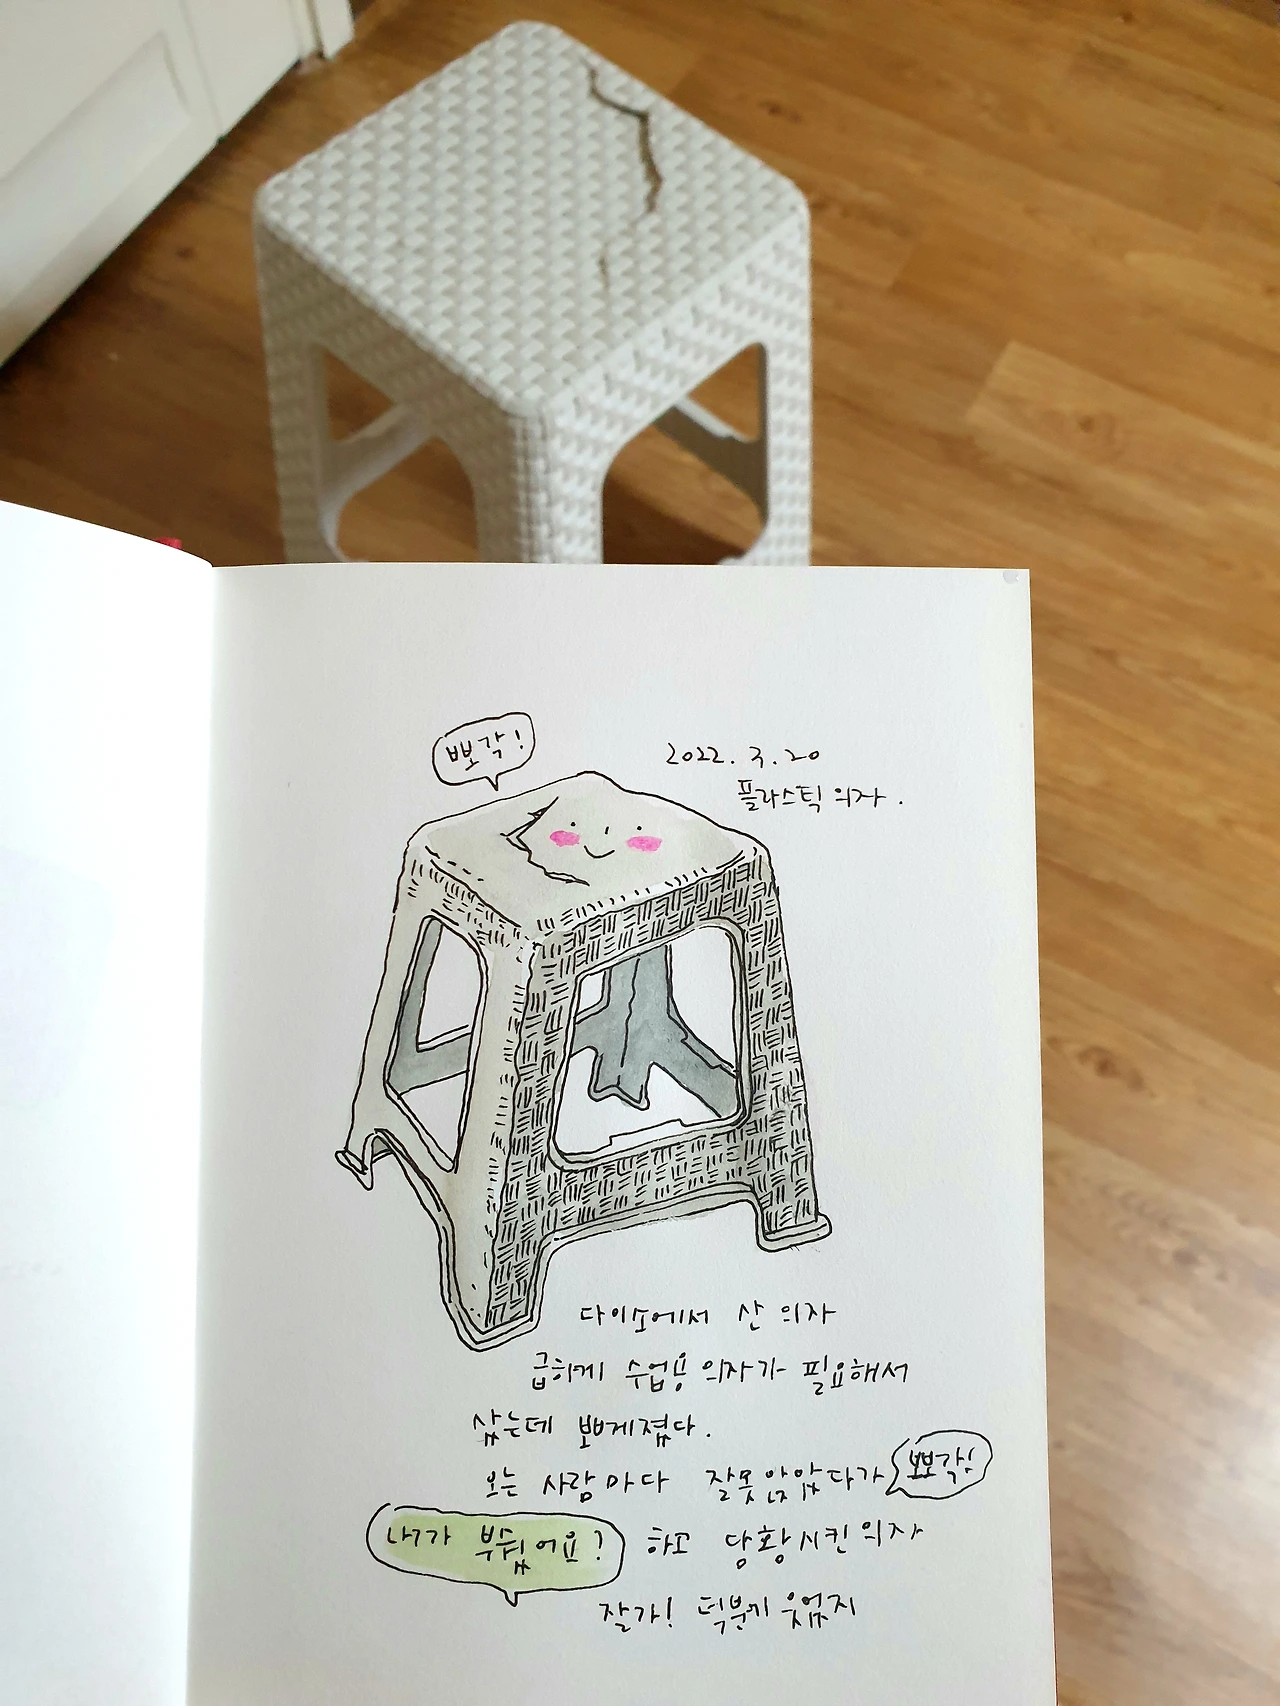 뽀각!
2022. 3. 20
플라스틱 의자.
다이소에서 산 의자
급하게 수업용 의자가 필요해서
샀는데 뽀게졌다.
오는 사람마다 잘못 앉았다가 뽀각!
나가 부쉈어요? 하고 당황시킨 의자
잘가! 덕분에 웃었지